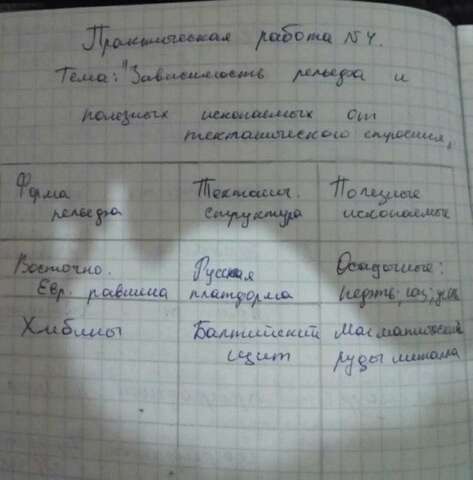 Практическая работа №4.
Тема: "Зависимость рельефа и
полезных ископаемых от
тектонического строения"
Форма рельефа
Тектонич. структура
Полезные ископаемые
Восточно. Евр. равнина
Русская платформа
Осадочные: нефть; газ; уголь
Хибины
Балтийский щит
Магматический руды металла